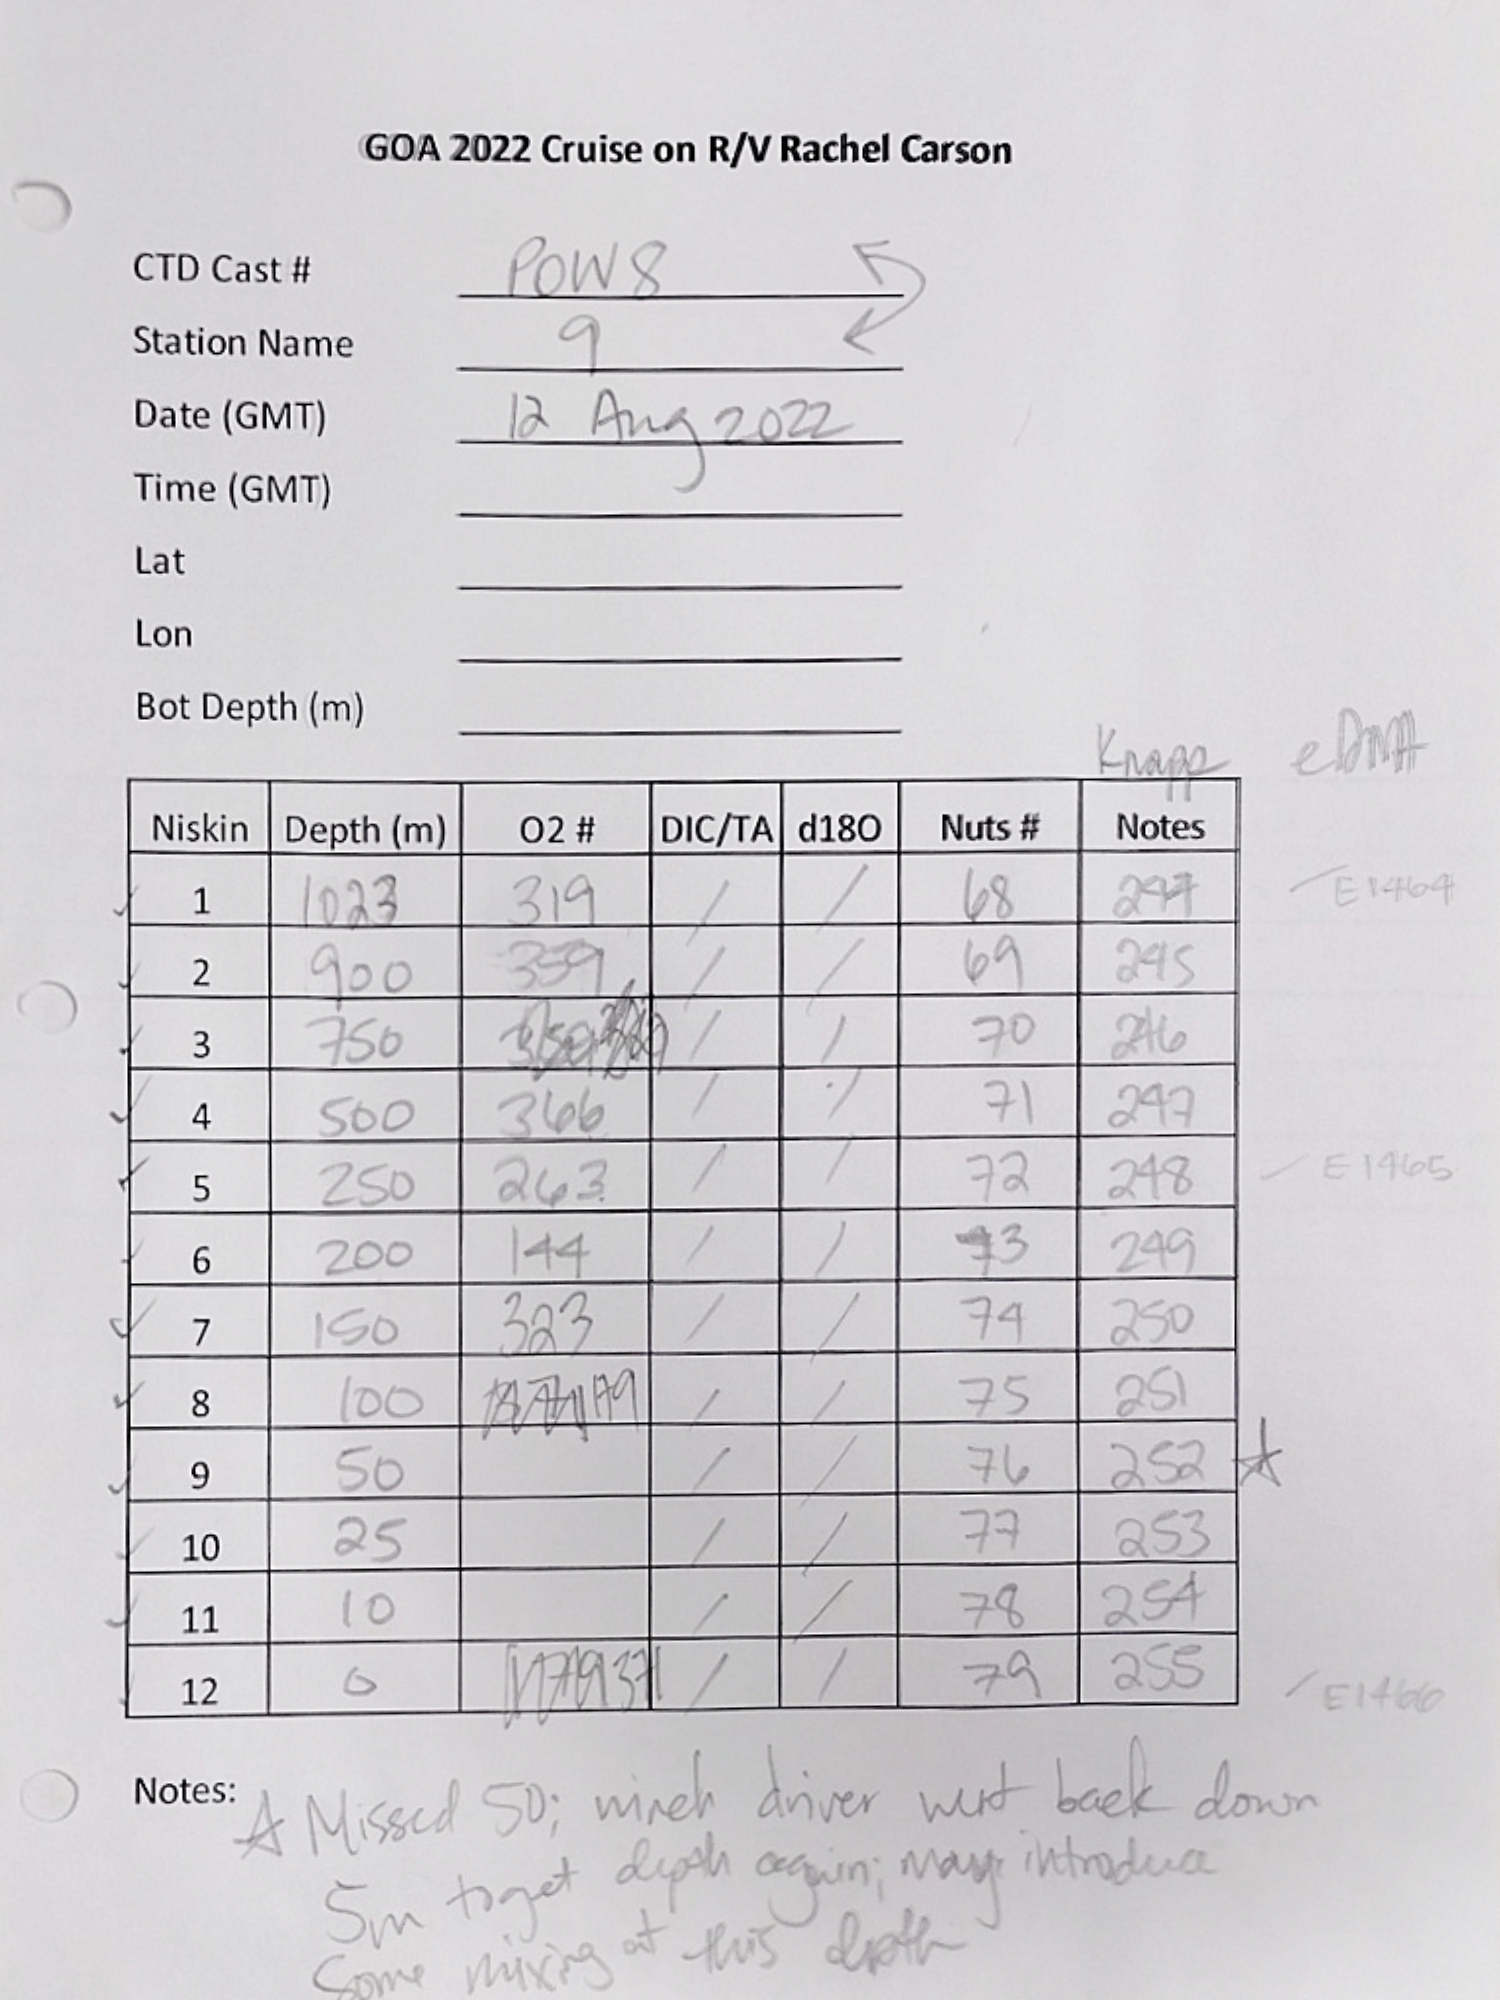 GOA 2022 Cruise on R/V Rachel Carson
CTD Cast # POW8
Station Name 9
Date (GMT) 12 Aug 2022
Time (GMT)
Lat
Lon
Bot Depth (m)
Knapp eDNA
Niskin Depth (m) O2 # DIC/TA d18O Nuts # Notes
1 1023 319 / / 68 E1464
2 900 359 / / 69 245
3 750 / / 70 246
4 500 366 / / 71 247
5 250 263 / / 72 248 E1465
6 200 144 / / 73 249
7 150 323 / / 74 250
8 100 / / 75 251
9 50 / / 76 252 ☆
10 25 / / 77 253
11 10 / / 78 254
12 0 / / 79 255 E1466
Notes: ☆ Missed 50; winch driver went back down
5m to get depth again; may introduce
some mixing at this depth